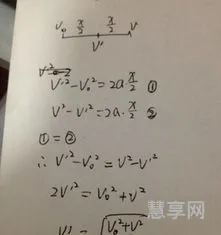 V₀ x/2 x/2 V
V'
V'²
V'²-V₀²=2a x/2 ①
V²-V'²=2a·x/2 ②
①=②
∴ V'²-V₀²=V²-V'²
2V'²=V₀²+V²
V'=√V₀²+V²
慧享网